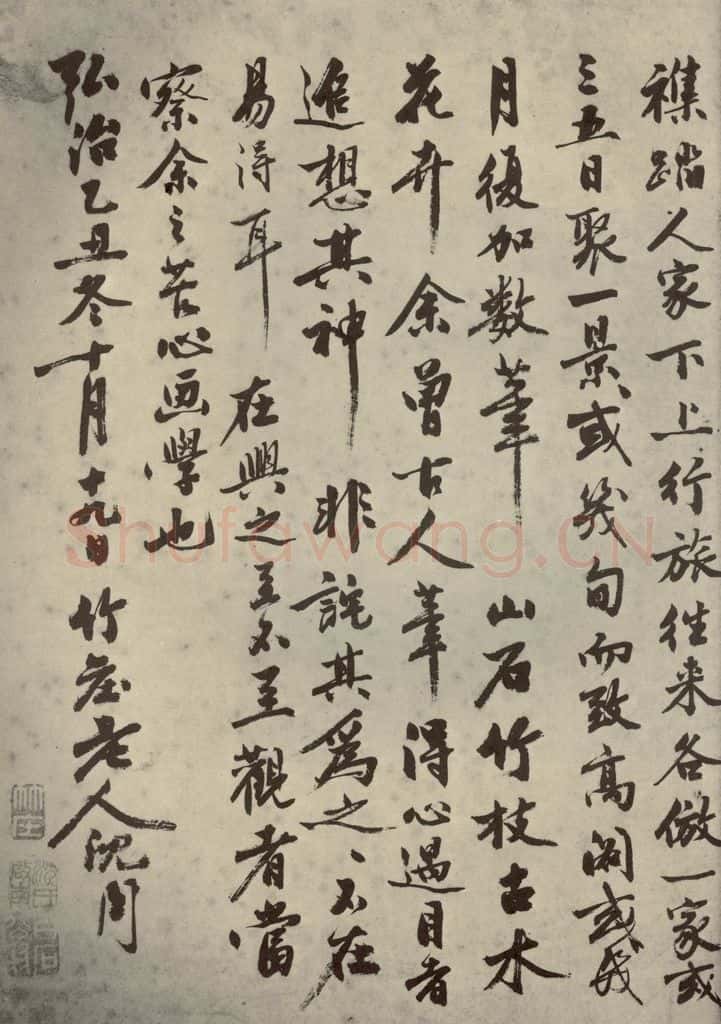 襍踏人家下上行旅往来各倣一家或
三五日聚一景或幾旬而致高阁或幾
月復加数筆 山石竹枝古木
花卉 余曾古人筆得心遇目者
追想其神 非詫其為之〻不在
易得耳 在興之至不至觀者當
察余之苦心画學也
弘治乙丑冬十月十九日竹庄老人沈周
Shufawang.CN